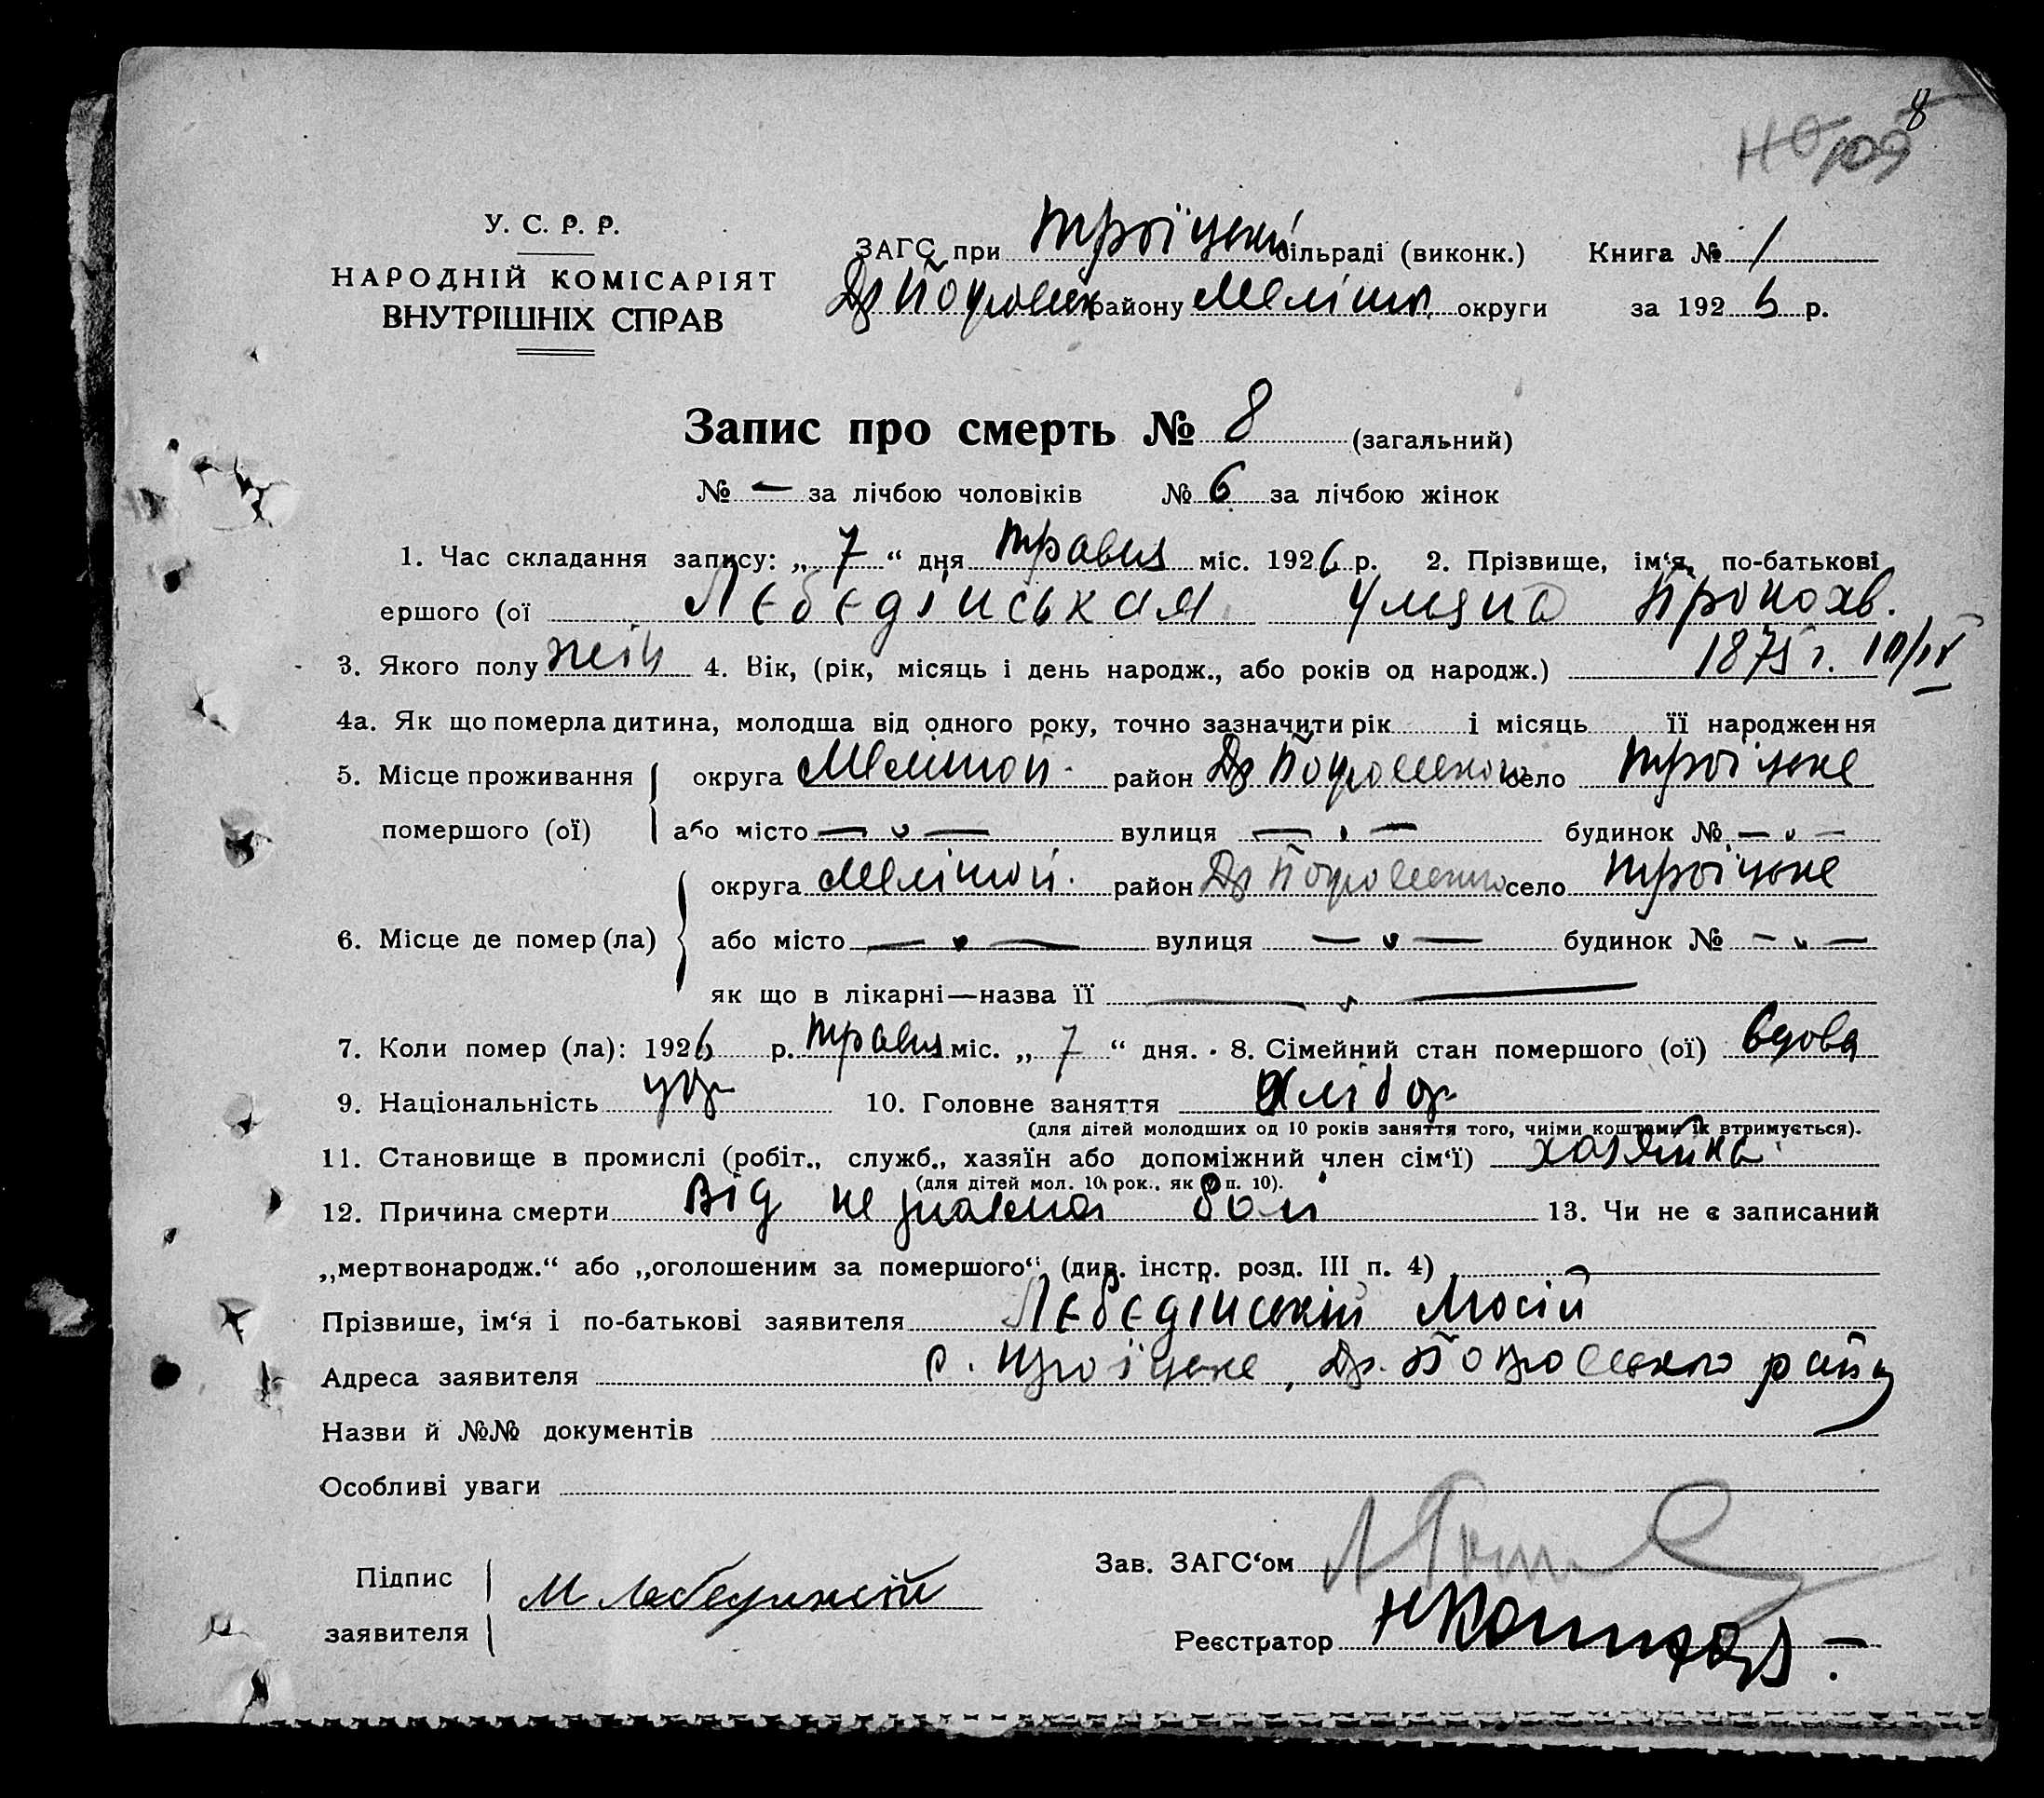 8
109
У. С. Р. Р.
НАРОДНІЙ КОМІСАРІЯТ
ВНУТРІШНІХ СПРАВ
ЗАГС при Троїцькі сільраді (виконк.) Книга № 1
району Меліт. округи за 1926 р.
Запис про смерть № 8 (загальний)
№ — за лічбою чоловіків № 6 за лічбою жінок
1. Час складання запису: „ 7 “ дня травня міс. 1926 р. 2. Прізвище, ім‘я, по-батькові
ершого (ої Лєбєдінськая Уляна
3. Якого полу жін 4. Вік, (рік, місяць і день народж., або років од народж.) 1875 г.
4а. Як що померла дитина, молодша від одного року, точно зазначити рік і місяць її народження
5. Місце проживання округа Мелітоп. район село Троїцьке
помершого (ої) або місто — „ — вулиця — „ — будинок № — „ —
округа Мелітоп. район село Троїцьке
6. Місце де помер (ла) або місто — „ — вулиця — „ — будинок № — „ —
як що в лікарні—назва її — „ —
7. Коли помер (ла): 1926 р. травня міс. „ 7 “ дня. 8. Сімейний стан помершого (ої) вдова
9. Національність укр 10. Головне заняття Хлібор
(для дітей молодших од 10 років заняття того, чиїми коштами їх втримується).
11. Становище в промислі (робіт., служб., хазяїн або допоміжний член сім‘ї) хозяйка
(для дітей мол. 10 рок., як у п. 10).
12. Причина смерти Від не знаємої болі 13. Чи не є записаний
„мертвонародж.“ або „оголошеним за помершого“, (див. інстр. розд. III п. 4) —
Прізвише, ім‘я і по-батькові заявителя Лєбєдінській Мосій
Адреса заявителя с. Троїцьке, Др. Покровського району
Назви й №№ документів
Особливі уваги
Зав. ЗАГС‘ом
Підпис
заявителя
М Лебединській
Реєстратор